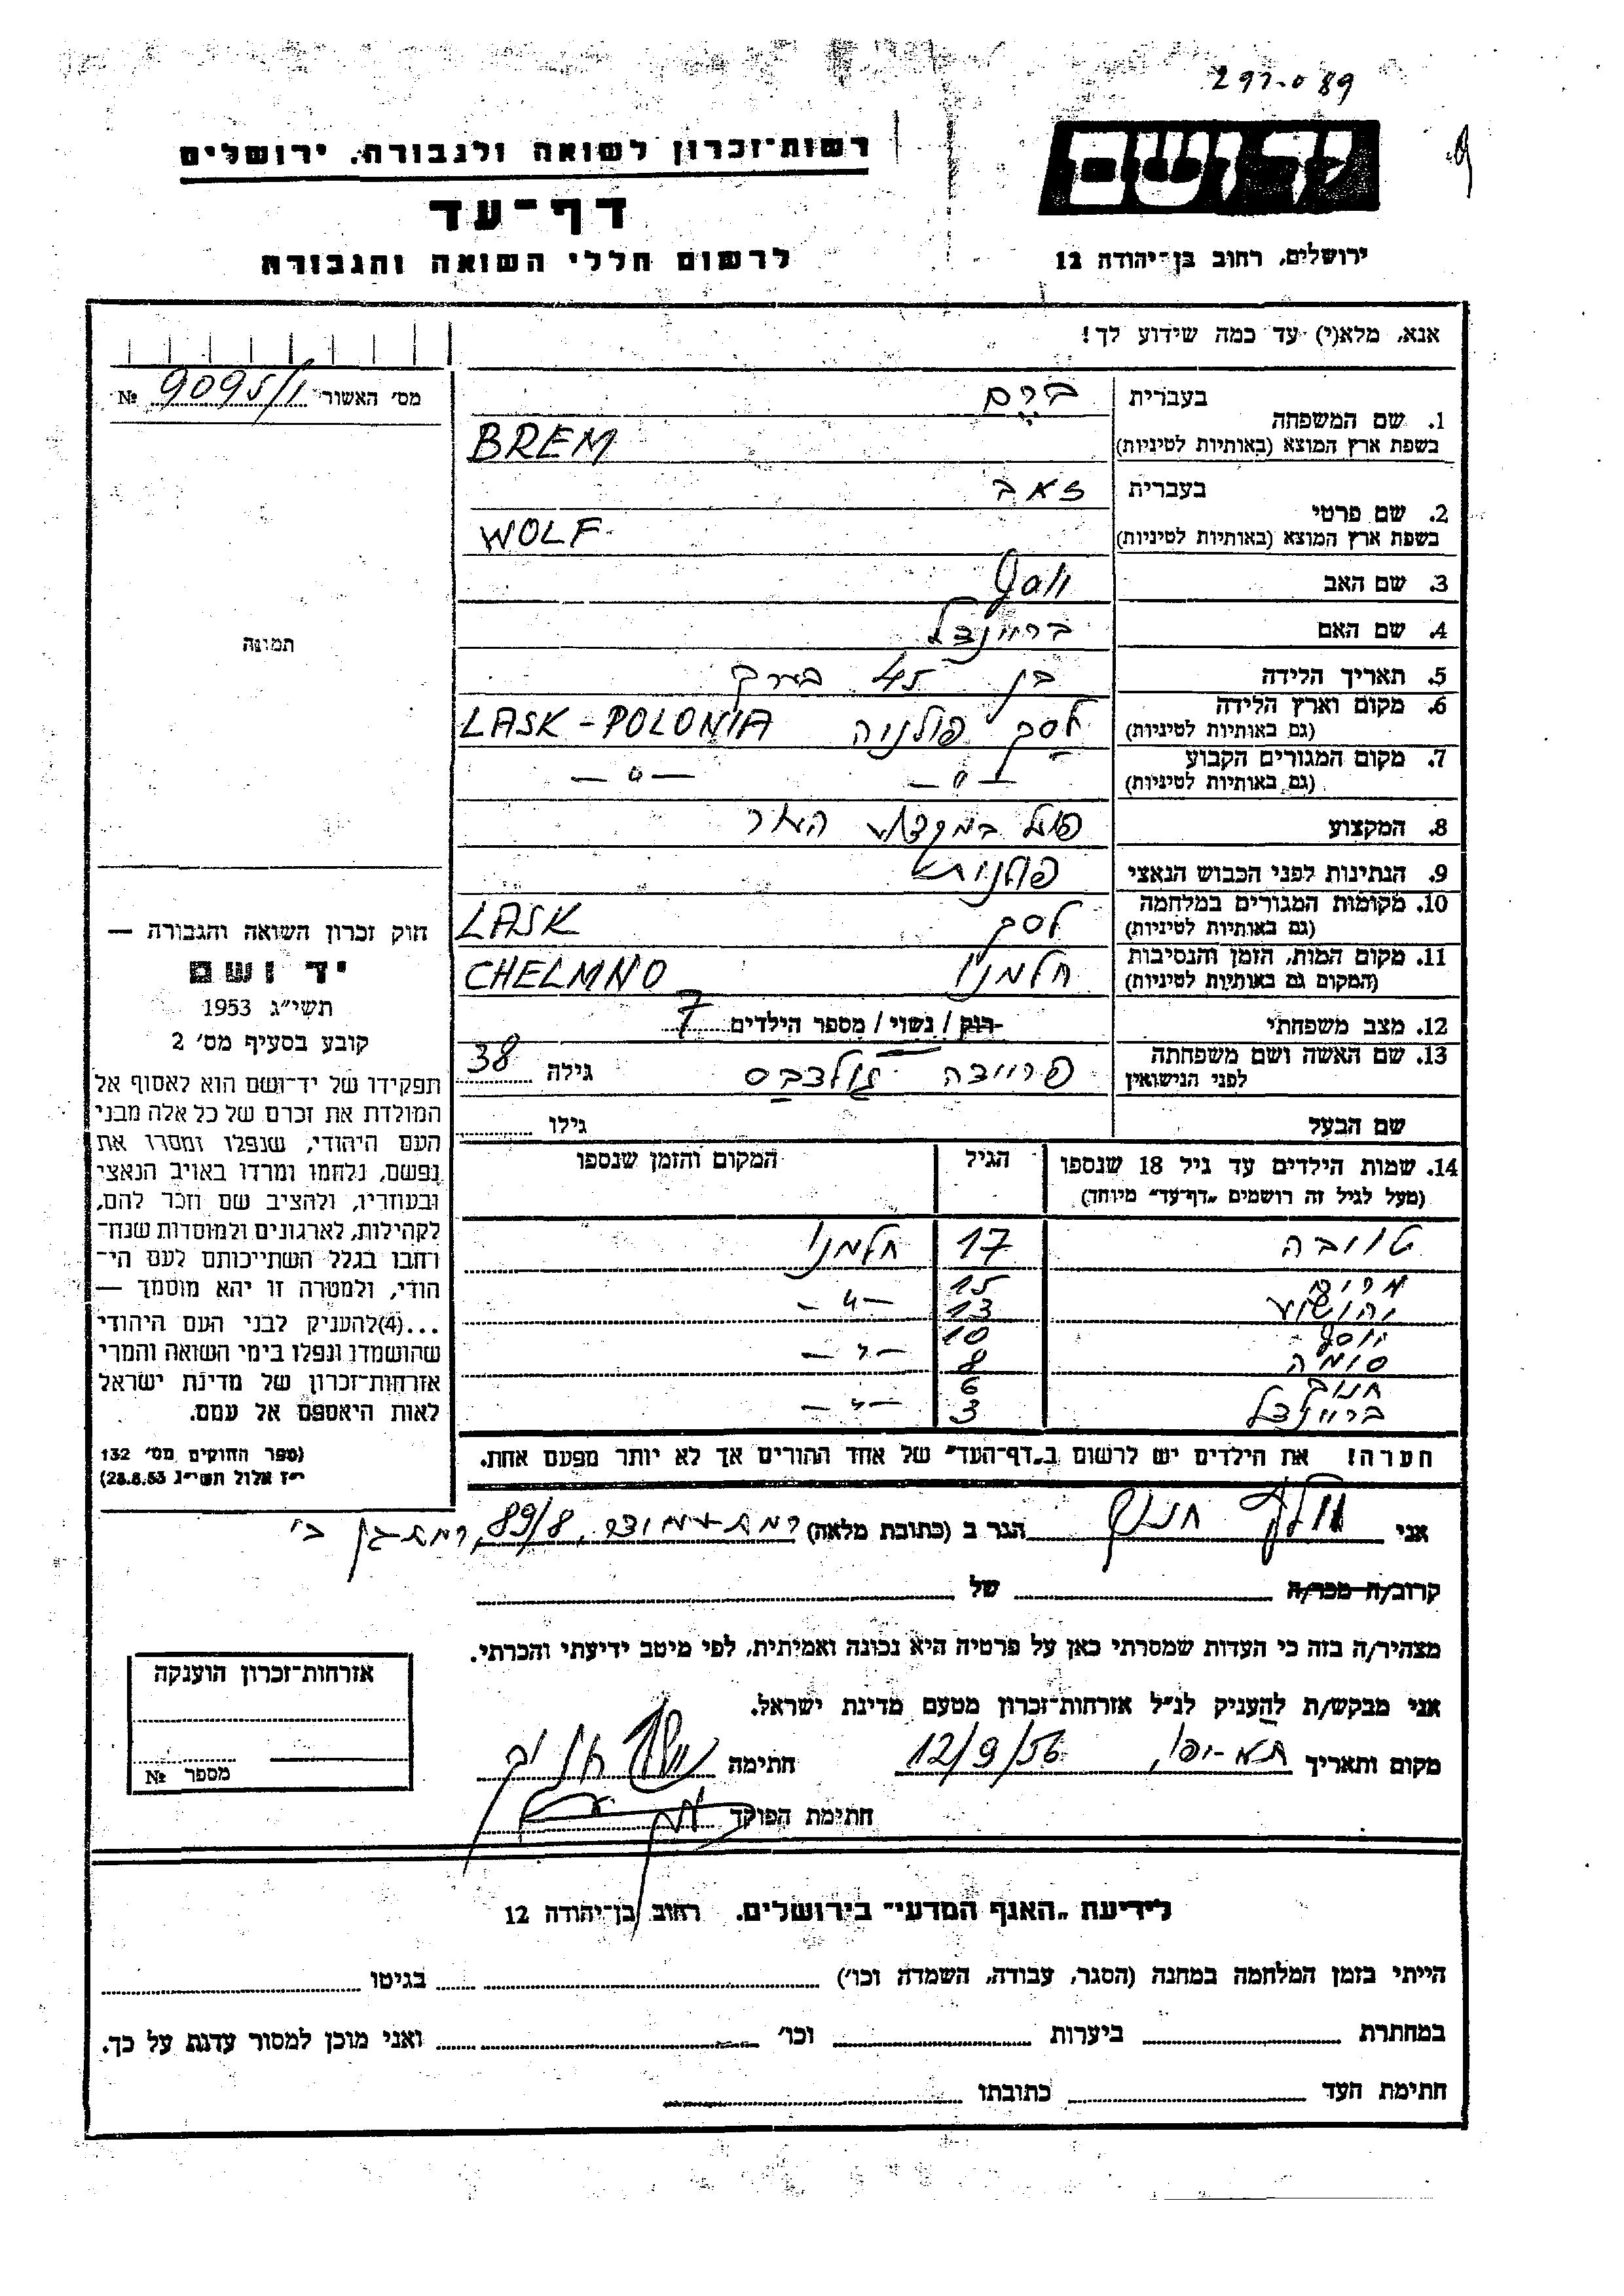 297-089
יד ושם
רשות-זכרון לשואה ולגבורה, ירושלים
דף-עד
ירושלים, רחוב בן-יהודה 12
לרשום חללי השואה והגבורה
אנא, מלא(י) עד כמה שידוע לך!
מס׳ האשור 9095/1 №
תמונה
1. שם המשפחה
בעברית ברם
בשפת ארץ המוצא (באותיות לטיניות) BREM
2. שם פרטי
בעברית זאב
בשפת ארץ המוצא (באותיות לטיניות) WOLF
3. שם האב יוסף
4. שם האם בריינדל
5. תאריך הלידה בן 45 בערך
6. מקום וארץ הלידה (גם באותיות לטיניות) לסק פולניה LASK - POLONIA
7. מקום המגורים הקבוע (גם באותיות לטיניות) —"— —"—
8. המקצוע פועל במקצוע
9. הנתינות לפני הכבוש הנאצי פולנית
10. מקומות המגורים במלחמה (גם באותיות לטיניות) לסק LASK
11. מקום המות, הזמן והנסיבות (המקום גם באותיות לטיניות) חלמנו CHELMNO
12. מצב משפחתי רוק / נשוי / מספר הילדים 7
13. שם האשה ושם משפחתה לפני הנישואין גילה 38
שם הבעל גילו
14. שמות הילדים עד גיל 18 שנספו הגיל המקום והזמן שנספו
(מעל לגיל זה רושמים „דף-עד״ מיוחד)
טובה 17 חלמנו
מרים 15
יהושע 13 —"—
יוסף 10
8 —"—
חנוך 6
בריינדל 3 —"—
הערה! את הילדים יש לרשום ב„דף-העד״ של אחד ההורים אך לא יותר מפעם אחת.
חוק זכרון השואה והגבורה —
יד ושם
תשי״ג 1953
קובע בסעיף מס׳ 2
תפקידו של יד-ושם הוא לאסוף אל
המולדת את זכרם של כל אלה מבני
העם היהודי, שנפלו ומסרו את
נפשם, נלחמו ומרדו באויב הנאצי
ובעוזריו, ולהציב שם וזכר להם,
לקהילות, לארגונים ולמוסדות שנח-
רחבו בגלל השתייכותם לעם הי-
הודי, ולמטרה זו יהא מוסמך —
...(4)להעניק לבני העם היהודי
שהושמדו ונפלו בימי השואה והמרי
אזרחות-זכרון של מדינת ישראל
לאות היאספם אל עמם.
(ספר החוקים מס׳ 132
י״ז אלול תשי״ג 28.8.53)
אני וולף חנוך הגר ב (כתובת מלאה) 89/8, רמת-גן
קרוב/ה מכר/ה של
מצהיר/ה בזה כי העדות שמסרתי כאן על פרטיה היא נכונה ואמיתית, לפי מיטב ידיעתי והכרתי.
אני מבקש/ת להעניק לנ״ל אזרחות-זכרון מטעם מדינת ישראל.
מקום ותאריך תא-יפו, 12/9/56 חתימה וולף חנוך
חתימת הפוקד
אזרחות-זכרון הוענקה
מספר №
לידיעת „האגף המדעי״ בירושלים. רחוב בן-יהודה 12
הייתי בזמן המלחמה במחנה (הסגר, עבודה, השמדה וכו׳) בגיטו
במחתרת ביערות וכו׳ ואני מוכן למסור עדות על כך.
חתימת העד כתובתו